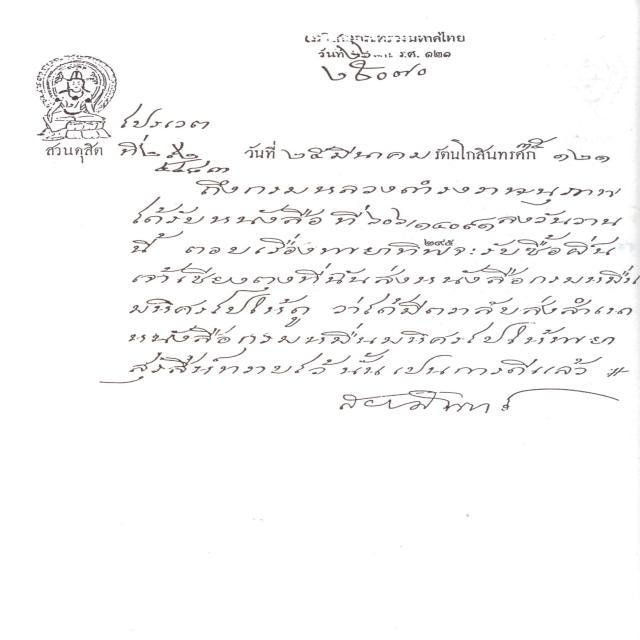 กระทรวงมหาดไทย
วันที่ ๒๖ ร.ศ. ๑๒๑
๒๕๐๗๐
ไปรเวต
สวนดุสิต ที่ ๒
๕๘๓
วันที่ ๒๕ มีนาคม รัตนโกสินทรศก ๑๒๑
ถึงกรมหลวงดำรงราชานุภาพ
ได้รับหนังสือ ที่ ๖๐๖/๑๔๐๙๑ ลงวันวาน
นี้ ตอบเรื่องพระยาทิพ จะรับซื้อฝิ่น
เจ้าเชียงตุงที่ฉันส่งหนังสือกรมหมื่น
มหิศรไปให้ดู ว่าได้มีตรากลับส่งสำเนา
หนังสือกรมหมื่นมหิศรไปให้พระยา
สุรสีห์ทราบไว้ นั้น เป็นการดีแล้ว ๚
สยามินทร์